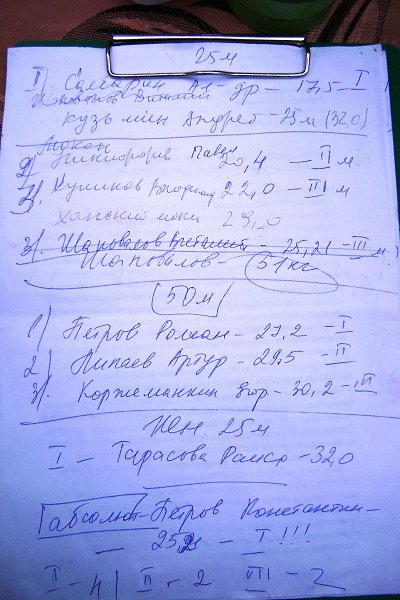 25м
I) Александр - 17,5 - I
Шаповалов Виталий
Кузьмин Андрей - 25м (32,0)
2) Никифоров Павел 20,4 - II м
3). Куликов Владимир 22,0 - III м
29,0
3). Шаповалов Виталий - 25,21 - III м
Шаповалов - 51кг
50м
1) Петров Роман - 27,2 - I
2) Липаев Артур - 29,5 - II
3). Коржеманкин Егор - 30,2 - III
жен 25м
I - Тарасова Раиса - 32,0
абсолют - Петров Константин -
- I !!!
I - 4 | II - 2 III - 2